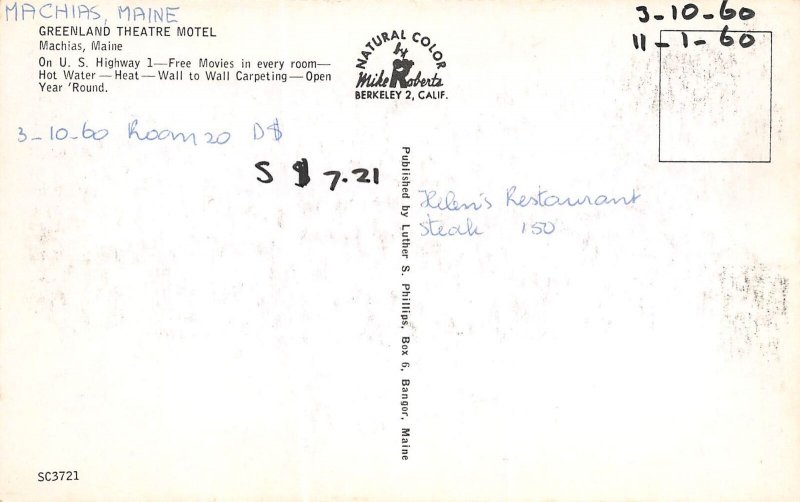 MACHIAS, MAINE
GREENLAND THEATRE MOTEL
Machias, Maine
On U. S. Highway 1—Free Movies in every room—
Hot Water—Heat—Wall to Wall Carpeting—Open
Year 'Round.
3-10-60 Room 20 D$
S $ 7.21
NATURAL COLOR
by
Mike Roberts
BERKELEY 2, CALIF.
3-10-60
11-1-60
Published by Luther S. Phillips, Box 6, Bangor, Maine
Helen's Restaurant
Steak 150
SC3721